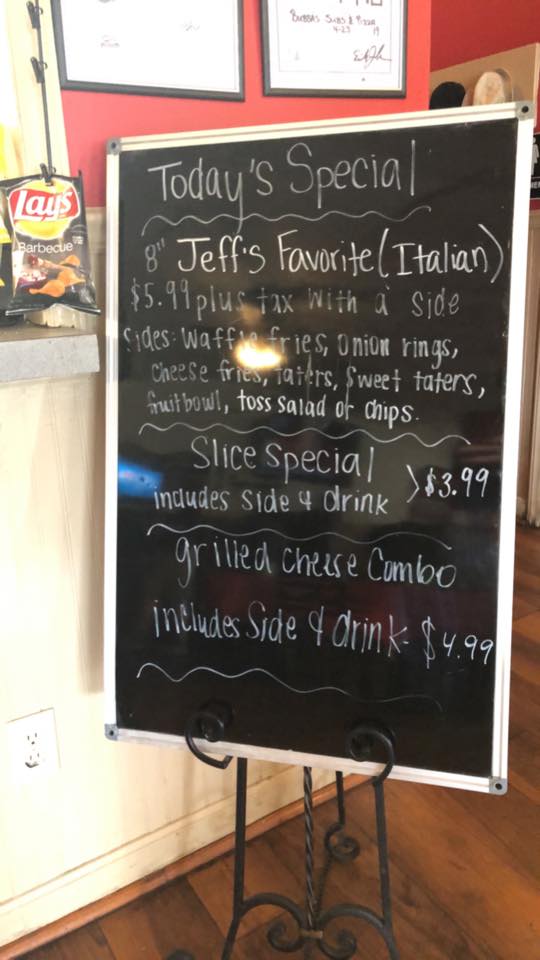 BUBBAS SUBS & PIZZA
4-23 19
Lay's
Barbecue
Today's Special
8" Jeff's Favorite (Italian)
$5.99 plus tax with a side
Sides: Waffle fries, onion rings,
cheese fries, taters, sweet taters,
fruit bowl, toss salad or chips.
Slice Special
includes side & drink > $3.99
grilled cheese Combo
includes Side & drink - $4.99